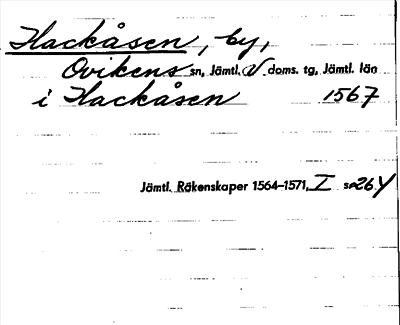 Hackåsen, by,
Ovikens sn, Jämtl. V. doms. tg, Jämtl. län
i Hackåsen 1567
Jämtl. Räkenskaper 1564–1571, I s. 26